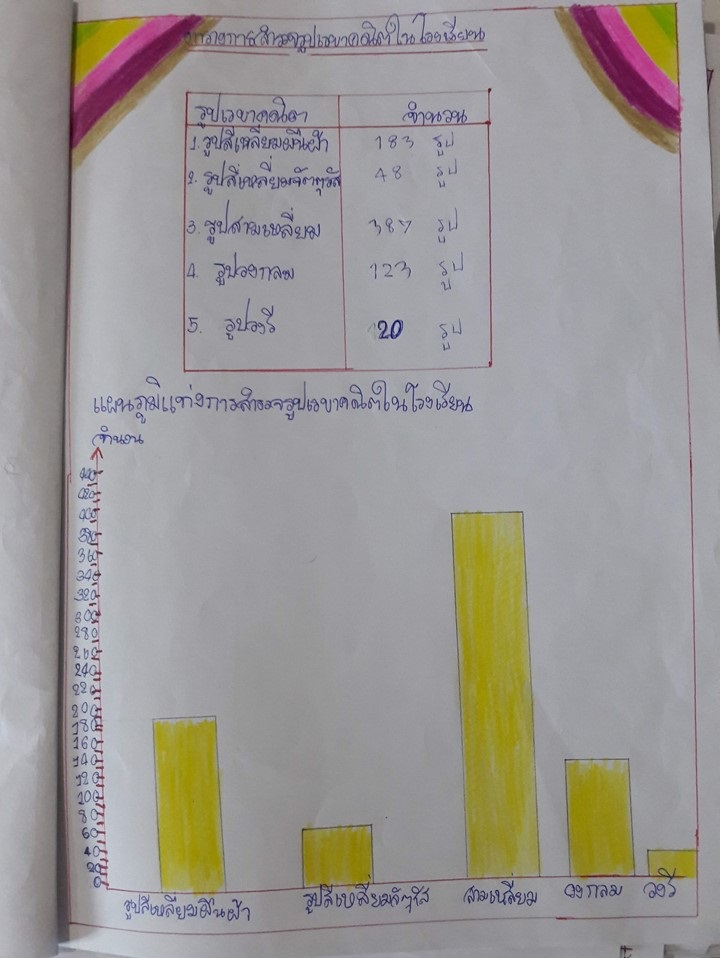 ตารางการสำรวจรูปเรขาคณิตในโรงเรียน
รูปเรขาคณิต จำนวน
1. รูปสี่เหลี่ยมผืนผ้า 183 รูป
2. รูปสี่เหลี่ยมจัตุรัส 48 รูป
3. รูปสามเหลี่ยม 387 รูป
4. รูปวงกลม 123 รูป
5. รูปวงรี 20 รูป
แผนภูมิแท่งการสำรวจรูปเรขาคณิตในโรงเรียน
จำนวน
440
420
400
380
360
340
320
300
280
260
240
220
200
180
160
140
120
100
80
60
40
20
0
รูปสี่เหลี่ยมผืนผ้า รูปสี่เหลี่ยมจัตุรัส สามเหลี่ยม วงกลม วงรี